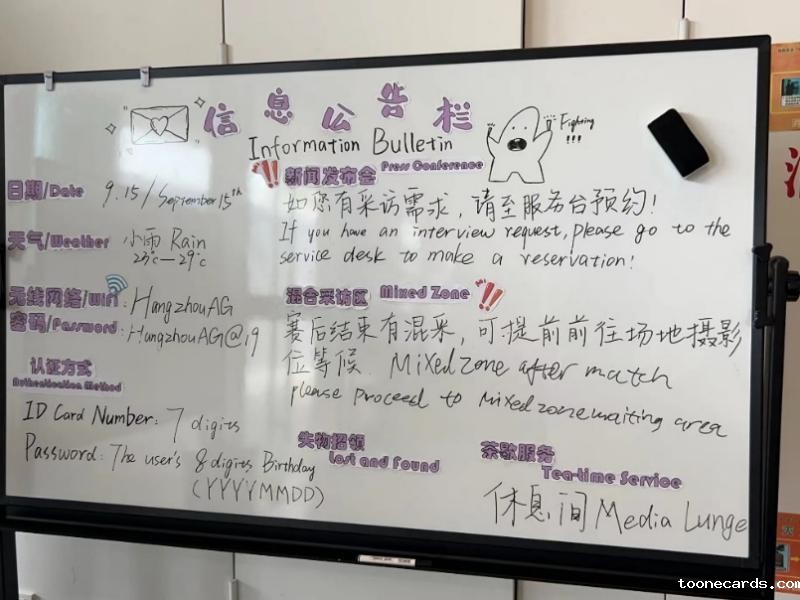 信息公告栏
Information Bulletin
Fighting
!!!
日期/Date 9.15/September 15th
天气/Weather 小雨 Rain
23℃—29℃
无线网络/Wifi: HangzhouAG
密码/Password: HangzhouAG@19
认证方式
Authentication Method
ID Card Number: 7 digits
Password: The user's 8 digits Birthday
(YYYYMMDD)
!! 新闻发布会 Press Conference
如您有采访需求，请至服务台预约!
If you have an interview request, please go to the
service desk to make a reservation!
混合采访区 Mixed Zone !!
赛后结束有混采，可提前前往场地摄影
位等候. Mixed zone after match
please proceed to Mixed zone waiting area
失物招领
Lost and Found
茶歇服务
Tea-time Service
休息间 Media Lunge
toonecards.com